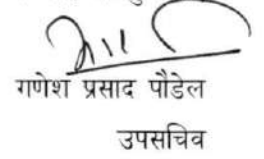 गणेश प्रसाद पौडेल
उपसचिव